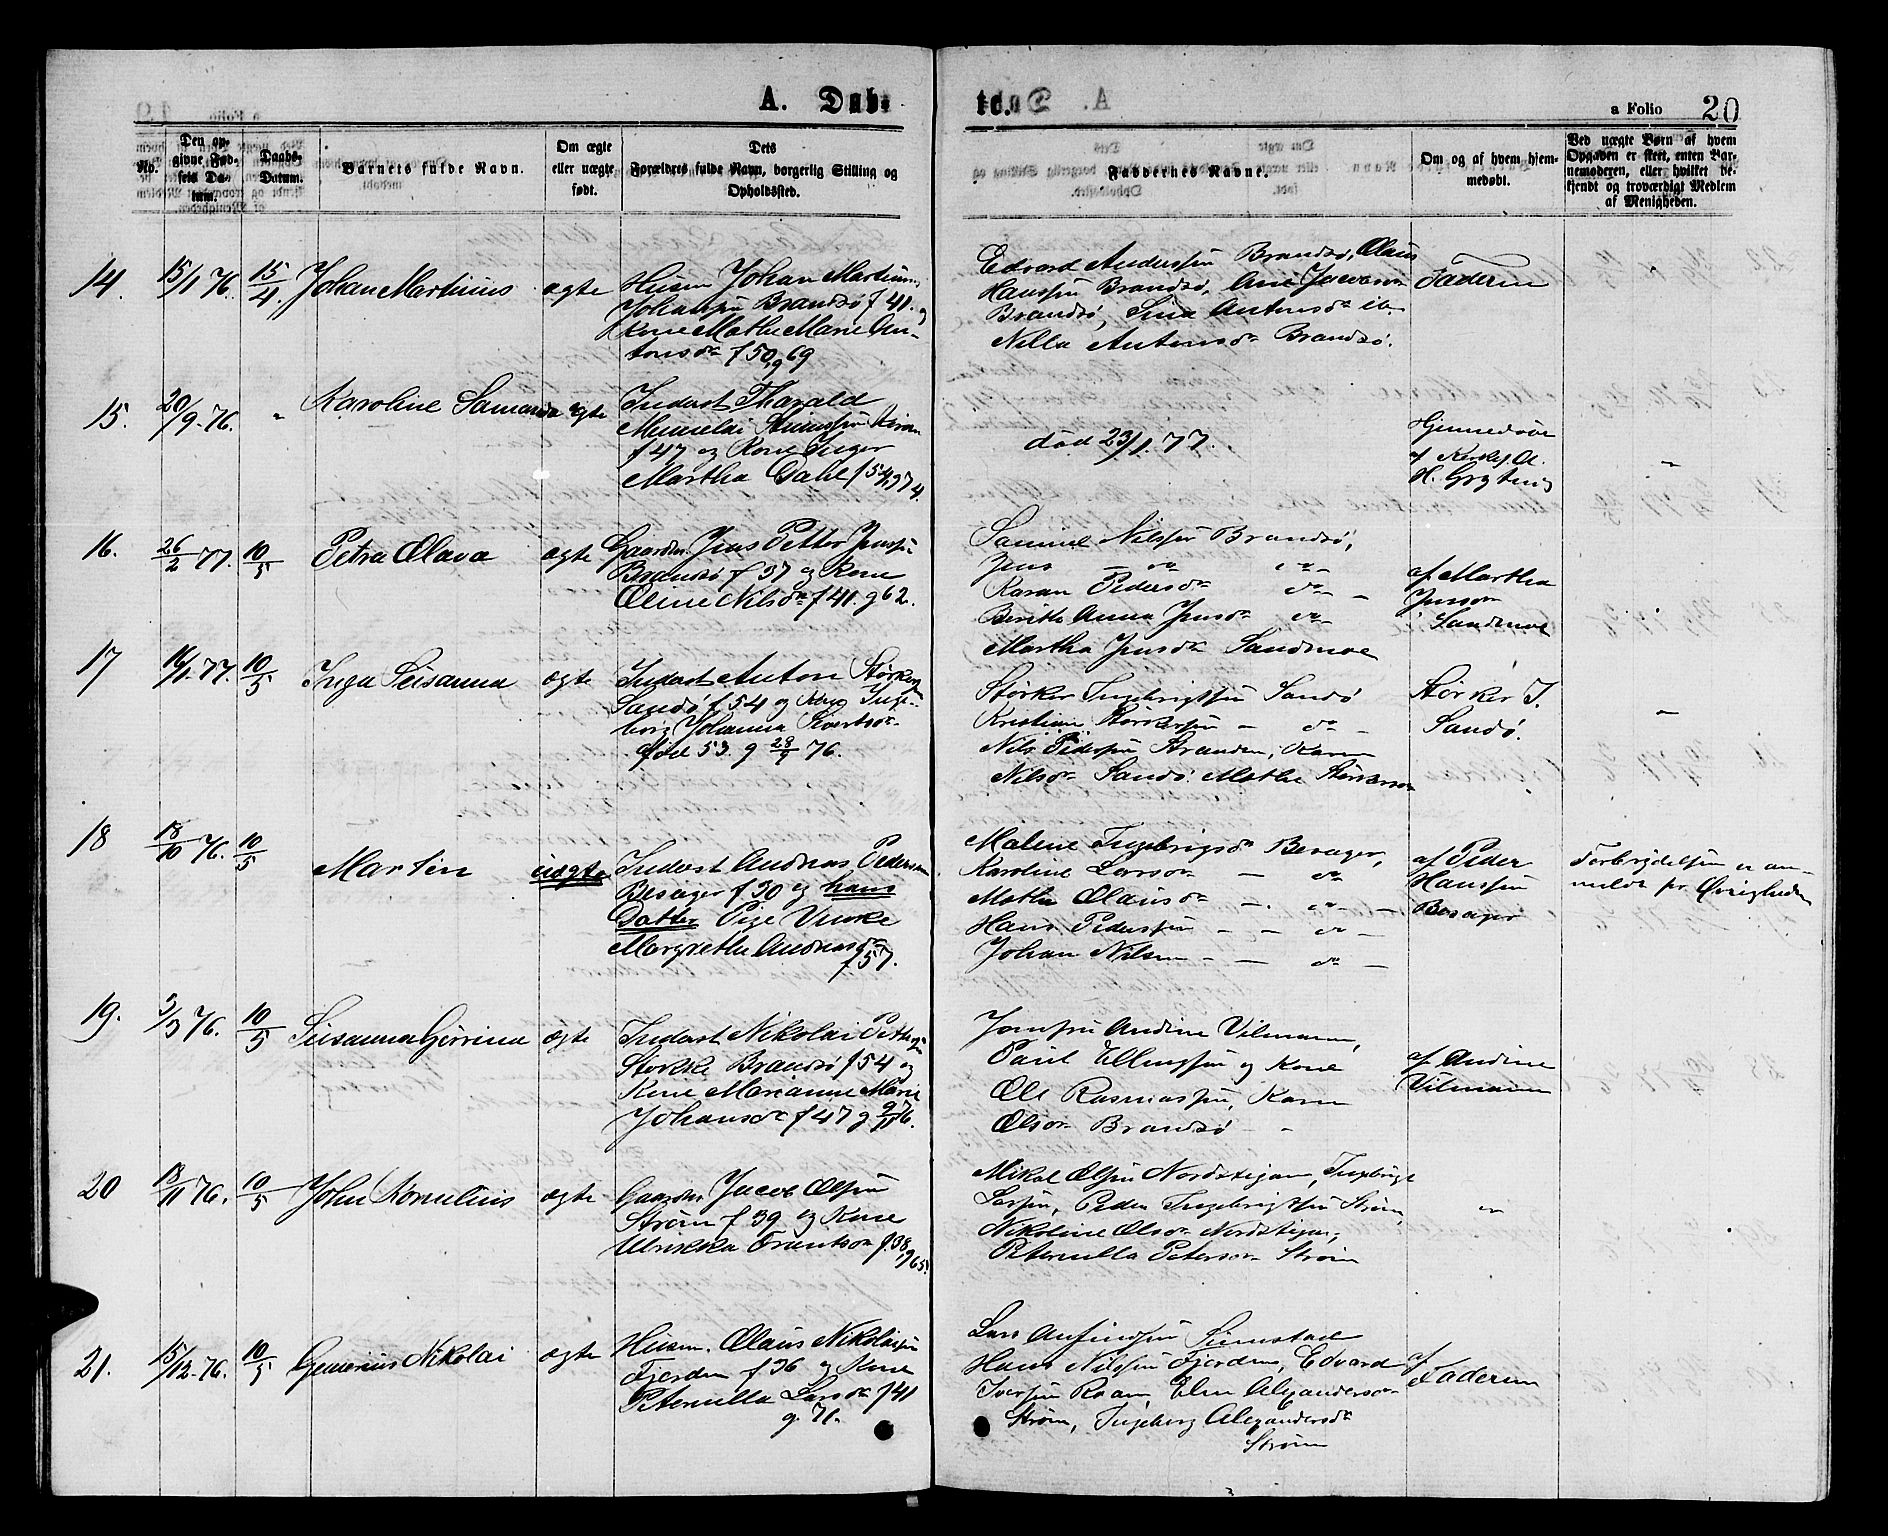 A. Dab-
te.
a Folio 20
No.
Den op-
givne Fød-
sels Da-
tum.
Daabs-
Datum.
Barnets fulde Navn.
Om ægte
eller uægte
født.
Dets
Forældres fulde Navn, borgerlig Stilling og
Opholdssted.
Faddernes Navne.
Om og af hvem hjem-
medøbt.
Ved uægte Børn af hvem
Opgaven er skeet, enten Bar-
nemoderen, eller hvilket be-
kjendt og troværdigt Medlem
af Menigheden.
14.
15/1 76.
15/4
Johan Martinus
ægte
Husm Johan Martinus
Johansøn Brandsø f 41. og
Kone Mathe Marie An-
tonsdr f 50, g 69
Edvard Anderssøn Brandsø, Olaus
Hanssøn Brandsø,
Brandsø, Antonsdr ib.
Nilla Antonsdr Brandsø.
Faderen
15.
20/9-76.
"
Karoline Samanda
ægte
Inderst Tharald
f 47 og Kone Inger
Martha Dahl f 54, g 74.
død 23/1. 77.
Hjemmedøbt
af Kirkes. A.
H. Grytting
"
16.
26/2 77.
10/5
Petra Olava
ægte
Gaardbr. Jens Petter Jenssøn
Brandsø f 37 og Kone
Oline Nilsdr f 41. g 62.
Samuel Nilssøn Brandsø,
Jens do do
Karen Pedersdr do
Berithe Anna Jensdr do
Martha Jensdr Sandmoe
af Martha
Jensdr
Sandmoe
17
16/1-77.
10/5
Inga Susanna
ægte
Inderst Anton Størkers.
Sandø f 54 og Kone Inge-
borg Johanna Sivertsdr
født 53. g 29/9 76.
Størker Ingebrigtssøn Sandø
Kristian Størkerssøn - do -
Nils Pederssøn Stranden, Karen
Nilsdr Sandø. Mathe Størkersdr
Størker I.
Sandø.
"
18
18/10 76.
10/5
Martin
uægte
Inderst Andreas Pederssøn
Besager f 30 og hans
Datter Pige
Margrethe Andreasdr
f 57.
Malene Ingebrigtsdr Besager,
Karoline Larsdr - do
Mathe Olausdr - do -
Hans Pederssøn - - do -
Johan Nilsen - - do -
af Peder
Hanssøn
Besager
Forbrydelsen er an-
meldt for Øvrigheden
19.
3/3 76.
10/5
Susanna Gjørrina
ægte
Inderst Nikolai Petterssøn
Brandsø f 54 og
Kone Marianne Marie
Johansdr f 47 g 9/11 76.
Jomfru Andine Vilmann,
Paul Ellingssøn og Kone
Ole Rasmussøn, Karen
Olsdr Brandsø
af Andine
Vilmann
20
18/11 76.
10/5
John Kornelius
ægte
Gaardbr. Jacob Olssøn
Strøm f 39 og Kone
Ulrikka f. 38, g 65.
Mikal Olssøn Nordstigen, Ingebrigt
Larssøn, Peder Ingebrigtssøn Strøm,
Nikoline Olsdr Nordstigen,
Peternilla Petersdr Strøm
"
21.
15/12-76.
10/5
Nikolai
ægte
Husm. Olaus Nikolaisøn
Fjorden f 36 og Kone
Peternilla Larsdr f 41
g. 71.
Lars Anfindssøn
Hans Nilssøn Fjorden, Edvard
Iverssøn Raaen, Elen Alexandersdr
Strøm, Ingeborg Alexandersdr
Strøm
af
Faderen